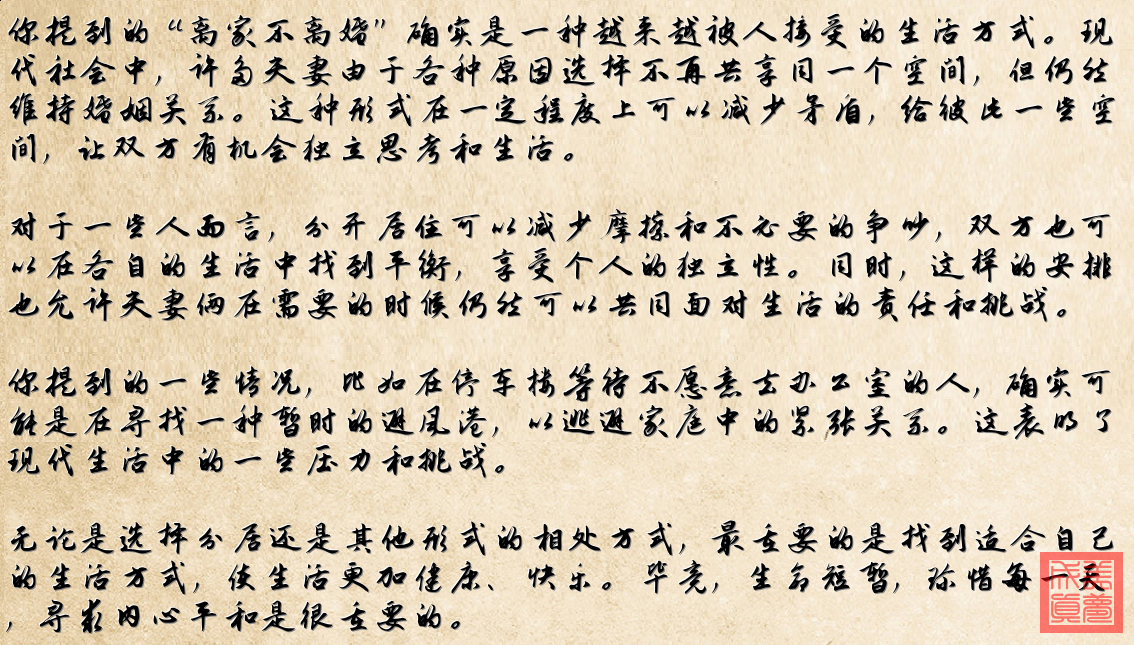 你提到的“离家不离婚”确实是一种越来越被人接受的生活方式。现
代社会中，许多夫妻由于各种原因选择不再共享同一个空间，但仍然
维持婚姻关系。这种形式在一定程度上可以减少矛盾，给彼此一些空
间，让双方有机会独立思考和生活。
对于一些人而言，分开居住可以减少摩擦和不必要的争吵，双方也可
以在各自的生活中找到平衡，享受个人的独立性。同时，这样的安排
也允许夫妻俩在需要的时候仍然可以共同面对生活的责任和挑战。
你提到的一些情况，比如在停车楼等待不愿意去办公室的人，确实可
能是在寻找一种暂时的避风港，以逃避家庭中的紧张关系。这表明了
现代生活中的一些压力和挑战。
无论是选择分居还是其他形式的相处方式，最重要的是找到适合自己
的生活方式，使生活更加健康、快乐。毕竟，生命短暂，珍惜每一天
，寻求内心平和是很重要的。